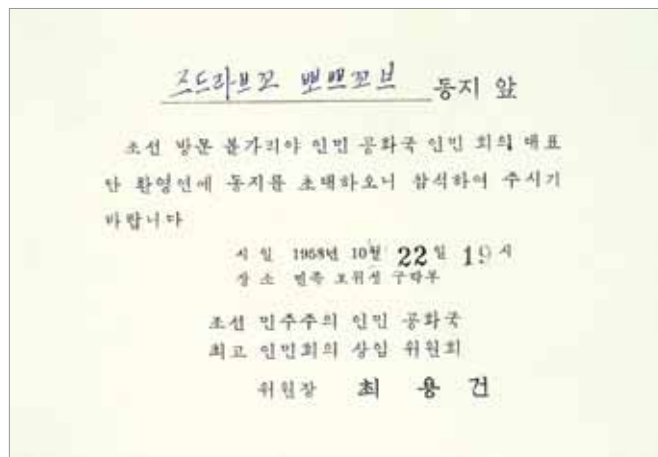 즈드라브꼬 뽀쁘꼬브 동지 앞
조선 방문 볼가리야 인민 공화국 인민 회의 대표
단 환영연에 동지를 초대하오니 참석하여 주시기
바랍니다
시 일 1958년 10월 22일 19시
장 소 민족 보위성 구락부
조선 민주주의 인민 공화국
최고 인민회의 상임 위원회
위원장 최 용 건